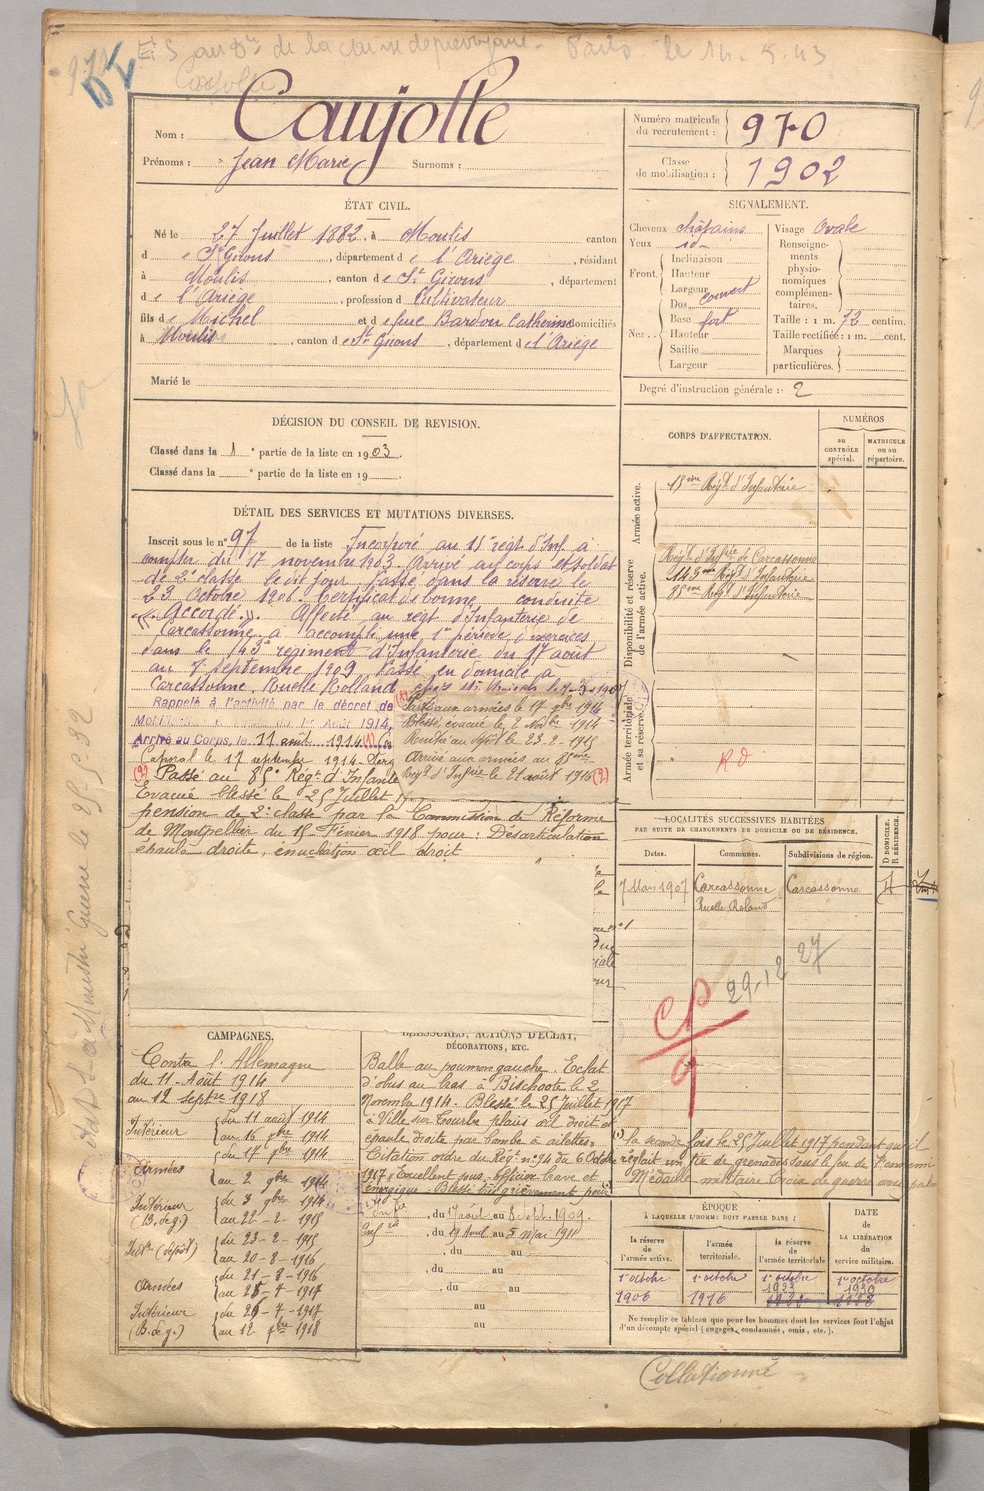 de la caisse de prévoyance - Paris le 14.5.43
Caujolle
Nom : Caujolle
Prénoms : Jean Marie Surnoms :
Numéro matricule du recrutement : 970
Classe de mobilisation : 1902
ÉTAT CIVIL.
Né le 27 Juillet 1882, à Moulis canton
d e St Girons, département d e l'Ariège, résidant
à Moulis, canton d e St Girons, département
d e l'Ariège, profession d Cultivateur
fils d e Michel et d e feue Bardou Catherine domiciliés
à Moulis, canton d e St Girons, département d e l'Ariège
Marié le
SIGNALEMENT.
Cheveux châtains Visage Ovale
Yeux id
Front. Inclinaison
Hauteur
Largeur couvert
Nez. Dos
Base fort
Hauteur
Saillie
Largeur
Renseignements physionomiques complémentaires.
Taille : 1 m. 72 centim.
Taille rectifiée : 1 m. cent.
Marques particulières.
Degré d'instruction générale : 2
DÉCISION DU CONSEIL DE REVISION.
Classé dans la 1e partie de la liste en 1903.
Classé dans la e partie de la liste en 19
DÉTAIL DES SERVICES ET MUTATIONS DIVERSES.
Inscrit sous le n° 97 de la liste Incorporé au 15e régt d'Inf à
compter du 17 novembre 1903. Arrivé au corps et soldat
de 2e classe le dit jour. Passé dans la réserve le
23 Octobre 1906. Certificat de bonne conduite
"Accordé". Affecté au régt d'Infanterie de
Carcassonne, a accompli une 1re période d'exercices
dans le 143e régiment d'Infanterie du 17 août
au 7 septembre 1909 Passé en domicile à
Carcassonne, Ruelle Rolland
Rappelé à l'activité par le décret de
Mobilisation du 1er Août 1914,
Arrivé au Corps, le 11 août 1914 (1)
Caporal le 17 septembre 1914
(2) Passé au 85e Régt d'Infante
(1) Parti aux armées le 17 9bre 1914
Blessé, évacué le 2 Novbre 1914
Rentré au dépôt le 23-2-1915
Arrivé aux armées au 85ème
Régt d'Infrie le 21 août 1916 (2)
Evacué blessé le 25 Juillet
pension de 2e classe par la Commission de Réforme
de Montpellier du 15 Février 1918 pour : Désarticulation
épaule droite, énucléation œil droit
CORPS D'AFFECTATION.
NUMÉROS
au CONTRÔLE spécial.
MATRICULE ou au répertoire.
Armée active.
15ème Régt d'Infanterie
Disponibilité et réserve de l'armée active.
Régt d'Infrie de Carcassonne
143ème Régt d'Infanterie
85ème Régt d'Infanterie
Armée territoriale et sa réserve.
R d
LOCALITÉS SUCCESSIVES HABITÉES
PAR SUITE DE CHANGEMENTS DE DOMICILE OU DE RÉSIDENCE.
Dates. Communes. Subdivisions de région. D DOMICILE. R RÉSIDENCE.
7 Mars 1907 Carcassonne Carcassonne
Ruelle Roland
29.12 27
CP
9
CAMPAGNES.
Contre l'Allemagne
du 11-Août 1914
au 12 Septre 1918
Intérieur du 11 août 1914
au 16 9bre 1914
Armées du 17 9bre 1914
au 2 9bre 1914
Intérieur (B. de g.) du 3 9bre 1914
au 22-2-1915
Intr (dépôt) du 23-2-1915
au 20-8-1916
Armées du 21-8-1916
au 25-7-1917
Intérieur (B. de g.) du 26-7-1917
au 12 9bre 1918
BLESSURES, ACTIONS D'ÉCLAT,
DÉCORATIONS, ETC.
Balle au poumon gauche. Eclat
d'obus au bras à Bischoote le 2
Novembre 1914. Blessé le 25 Juillet 1917
à Ville sur Tourbe plaies œil droit et
épaule droite par bombe à ailettes.
Citation ordre du Régt n° 94 du 6 Octobre
1917 "Excellent sous-officier brave et
énergique. Blessé très grièvement pour
la seconde fois le 25 Juillet 1917 pendant qu'il
réglait un tir de grenades sous le feu de l'ennemi
Médaille militaire Croix de guerre avec palme
du 17 août au 8 Sept. 1909.
du 19 Avril au 5 Mai 1911
, du au
, du au
, du au
au
au
ÉPOQUE
À LAQUELLE L'HOMME DOIT PASSER DANS :
la réserve de l'armée active. l'armée territoriale. la réserve de l'armée territoriale
DATE de LA LIBÉRATION du service militaire.
1er octobre 1906
1er octobre 1916
1er octobre
1er octobre 1930
Ne remplir ce tableau que pour les hommes dont les services font l'objet
d'un décompte spécial (engagés, condamnés, omis, etc.).
Collationné